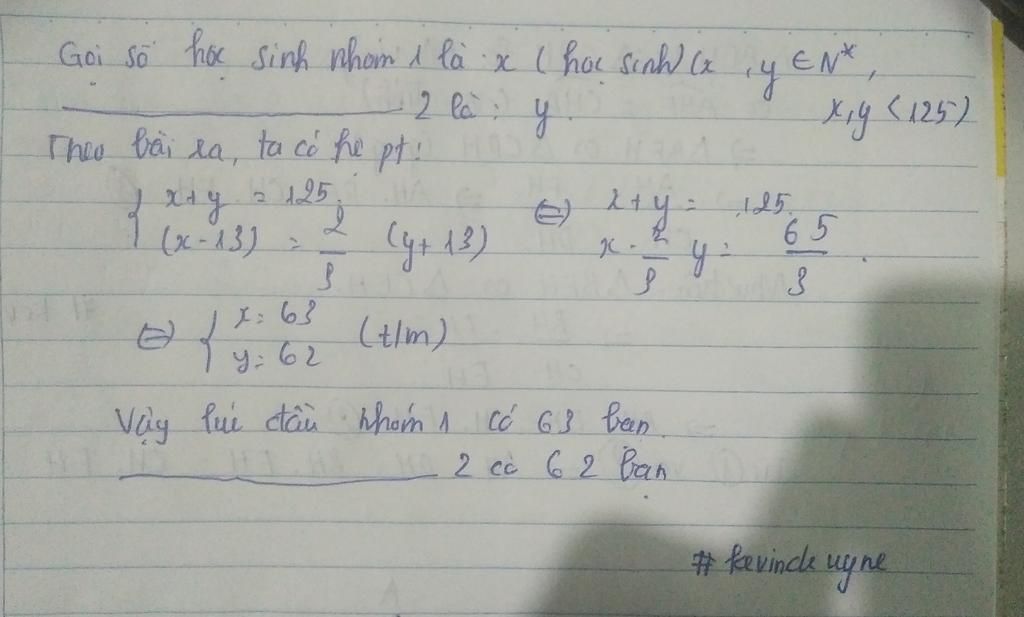 Gọi số học sinh nhóm 1 là x (học sinh) (x, y ∈ N*,
2 là: y. x, y < 125)
Theo bài ra, ta có hệ pt:
{ x + y = 125. ⇔ x + y = 125.
(x - 13) = 2/3 (y + 13) x - 2/3 y = 65/3.
⇔ { x = 63
y = 62 (t/m)
Vậy lúc đầu nhóm 1 có 63 bạn.
2 có 62 bạn